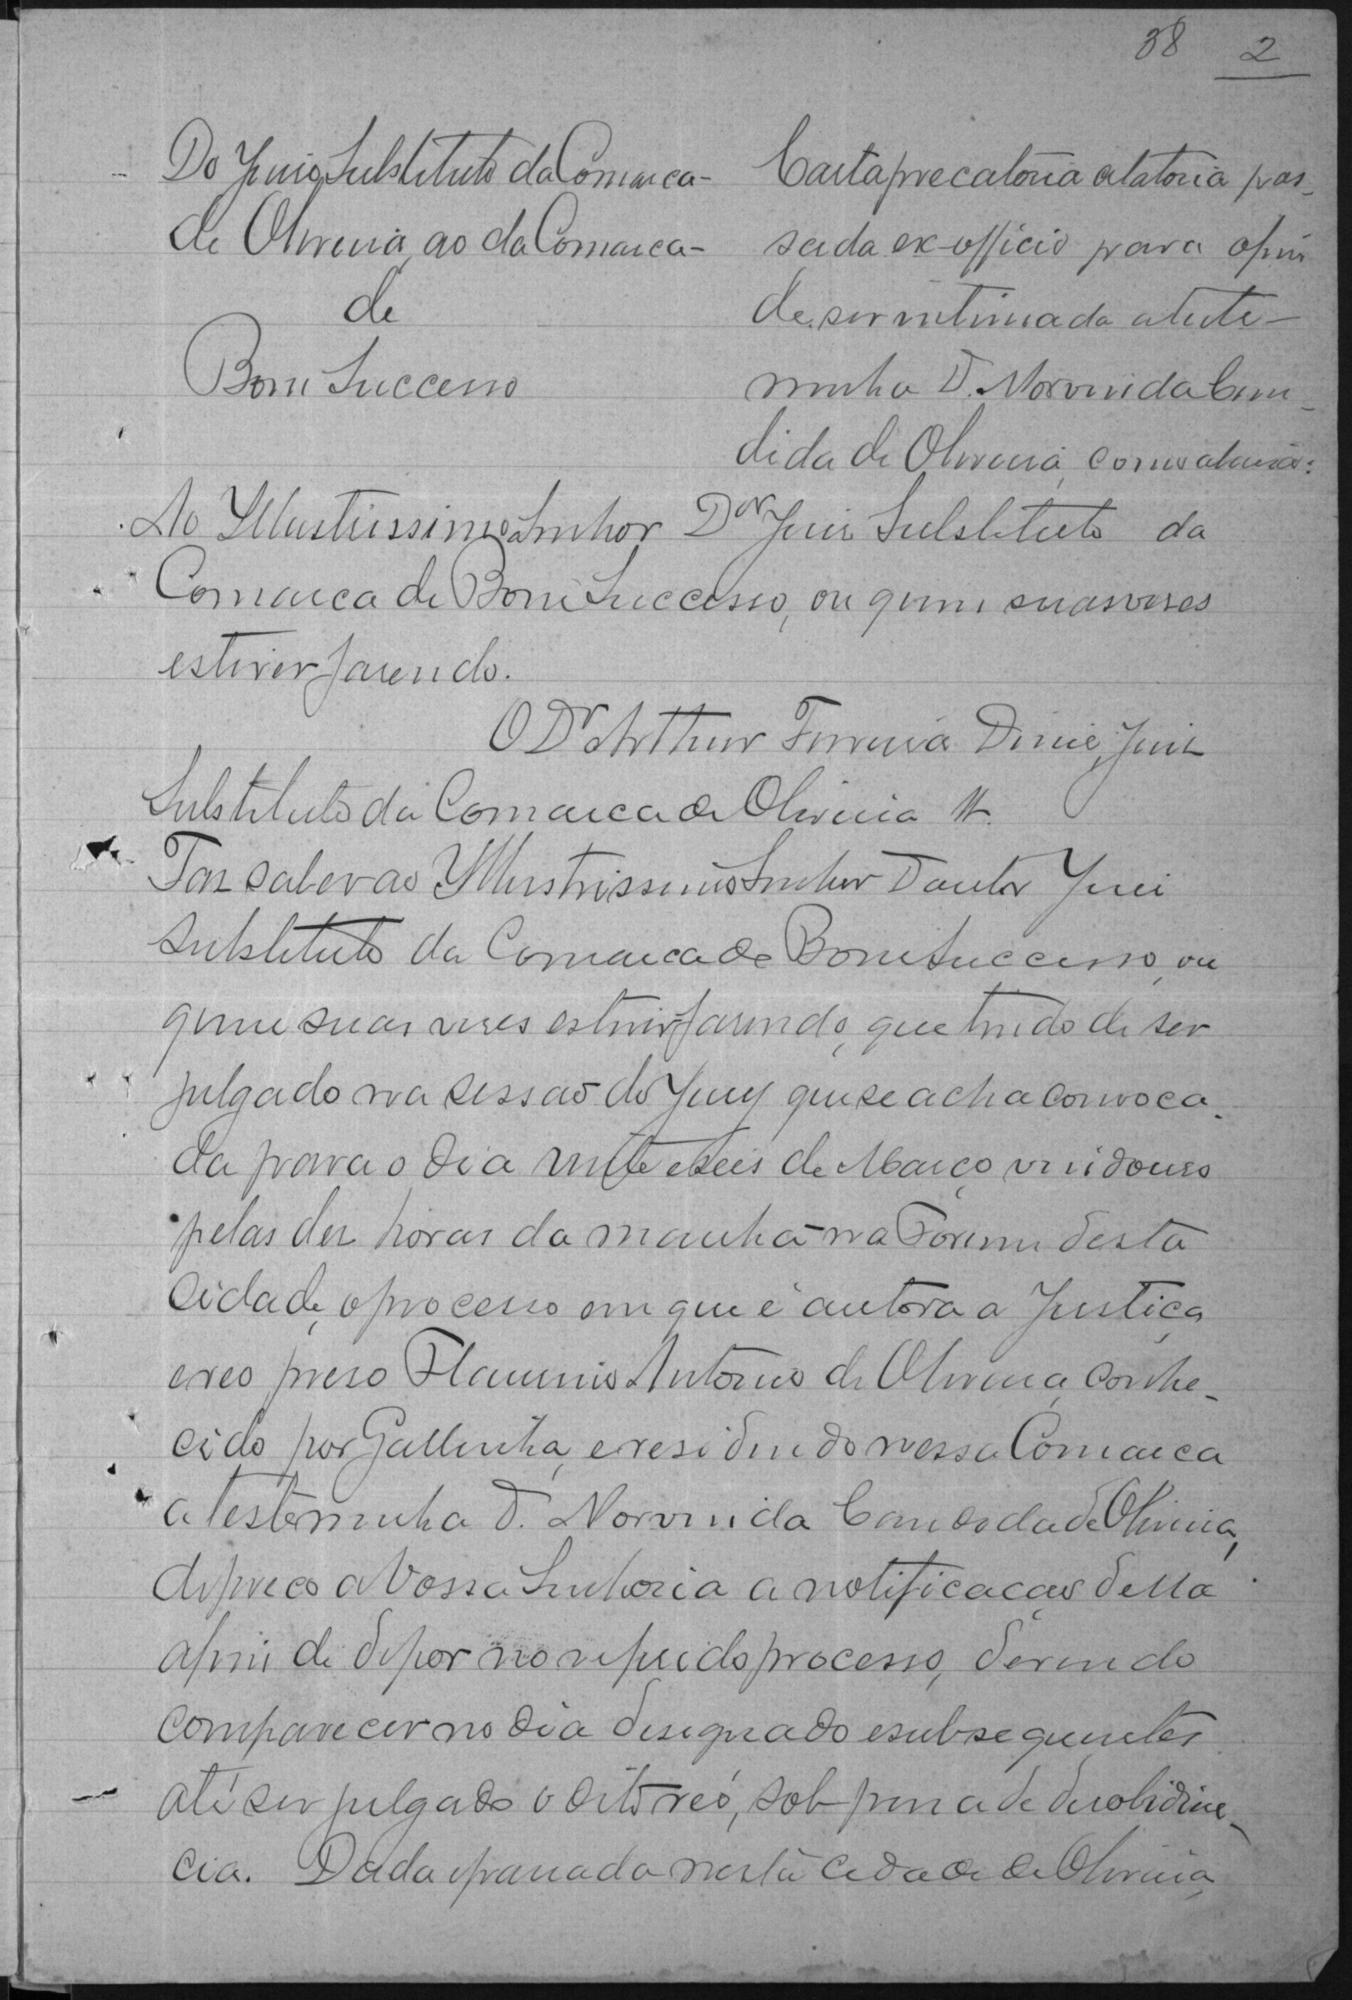 38 2
Do Juiz Substituto da Comarca
de Oliveira, ao da Comarca
de
Bom Successo
Carta precatoria citatoria pas-
sada ex-officio para afim
de ser intimada a teste-
munha D. Norvinda Can-
dida de Oliveira, como abaixo:
Ao Illustrissimo Senhor Dor Juiz Substituto da
Comarca de Bom Successo, ou quem suas vezes
estiver fazendo.
O Dr Arthur Ferreira Diniz, Juiz
Substituto da Comarca de Oliveira &.
Faz saber ao Illustrissimo Senhor Doutor Juiz
Substituto da Comarca de Bom Successo, ou
quem suas vezes estiver fazendo, que tendo de ser
julgado na sessão do Jury que se acha convoca-
da para o dia vinte e seis de Março vindouro
pelas dez horas da manhã na Forum desta
Cidade, o processo em que é autora a Justiça
e reo preso Flaminio Antonio de Oliveira, conhe-
cido por Gallinha, e residindo nessa Comarca
a testemunha D. Norvinda Candida de Oliveira,
depreco a Vossa Senhoria a notificação della
afim de depor no referido processo, devendo
comparecer no dia designado e subsequentes
até ser julgado o dito reo, sob pena de desobidien-
cia. Dada e passada nesta cidade de Oliveira,